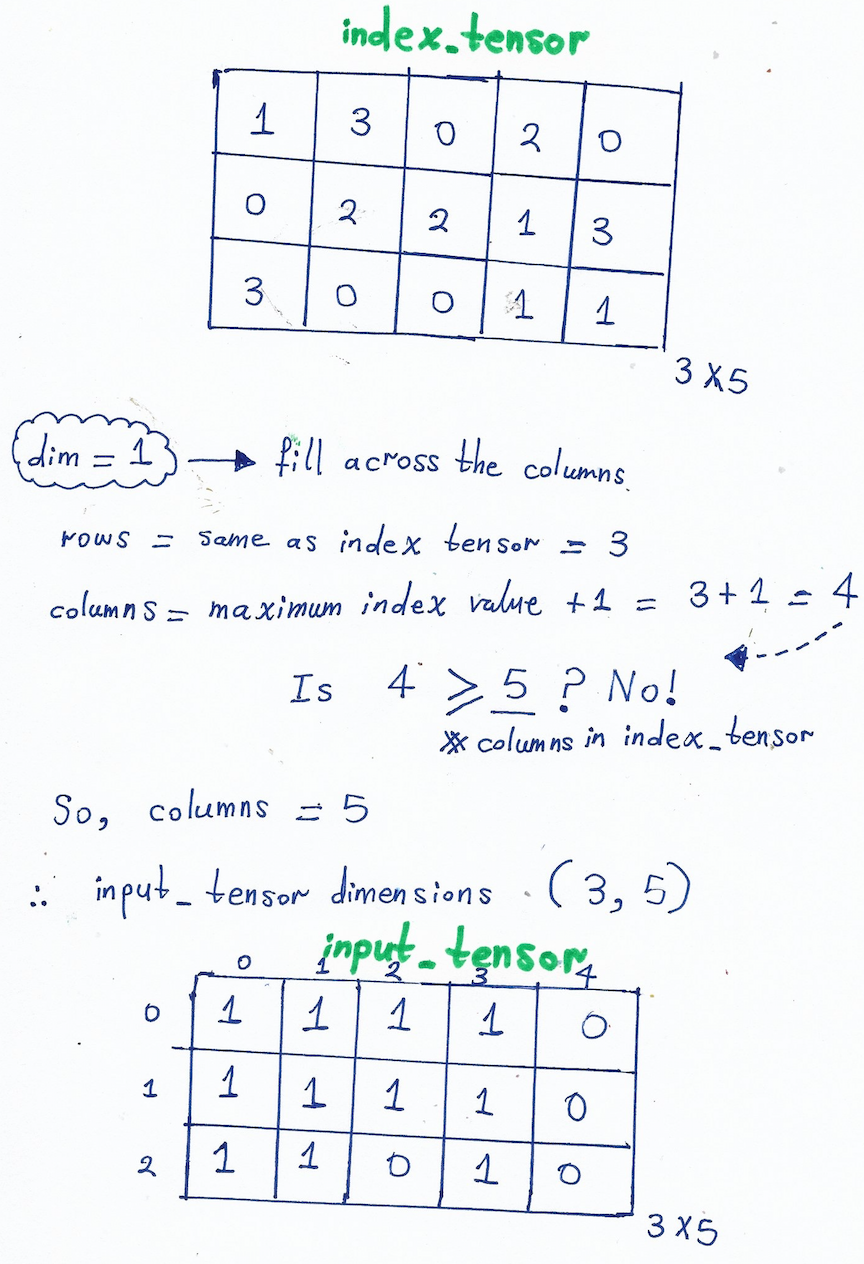 index_tensor
1 3 0 2 0
0 2 2 1 3
3 0 0 1 1
3 X 5
dim = 1 → fill across the columns.
rows = same as index tensor = 3
columns = maximum index value + 1 = 3 + 1 = 4
Is 4 ≥ 5 ? No!
* columns in index_tensor
So, columns = 5
∴ input_tensor dimensions (3, 5)
input_tensor
0 1 2 3 4
0 1 1 1 1 0
1 1 1 1 1 0
2 1 1 0 1 0
3 X 5